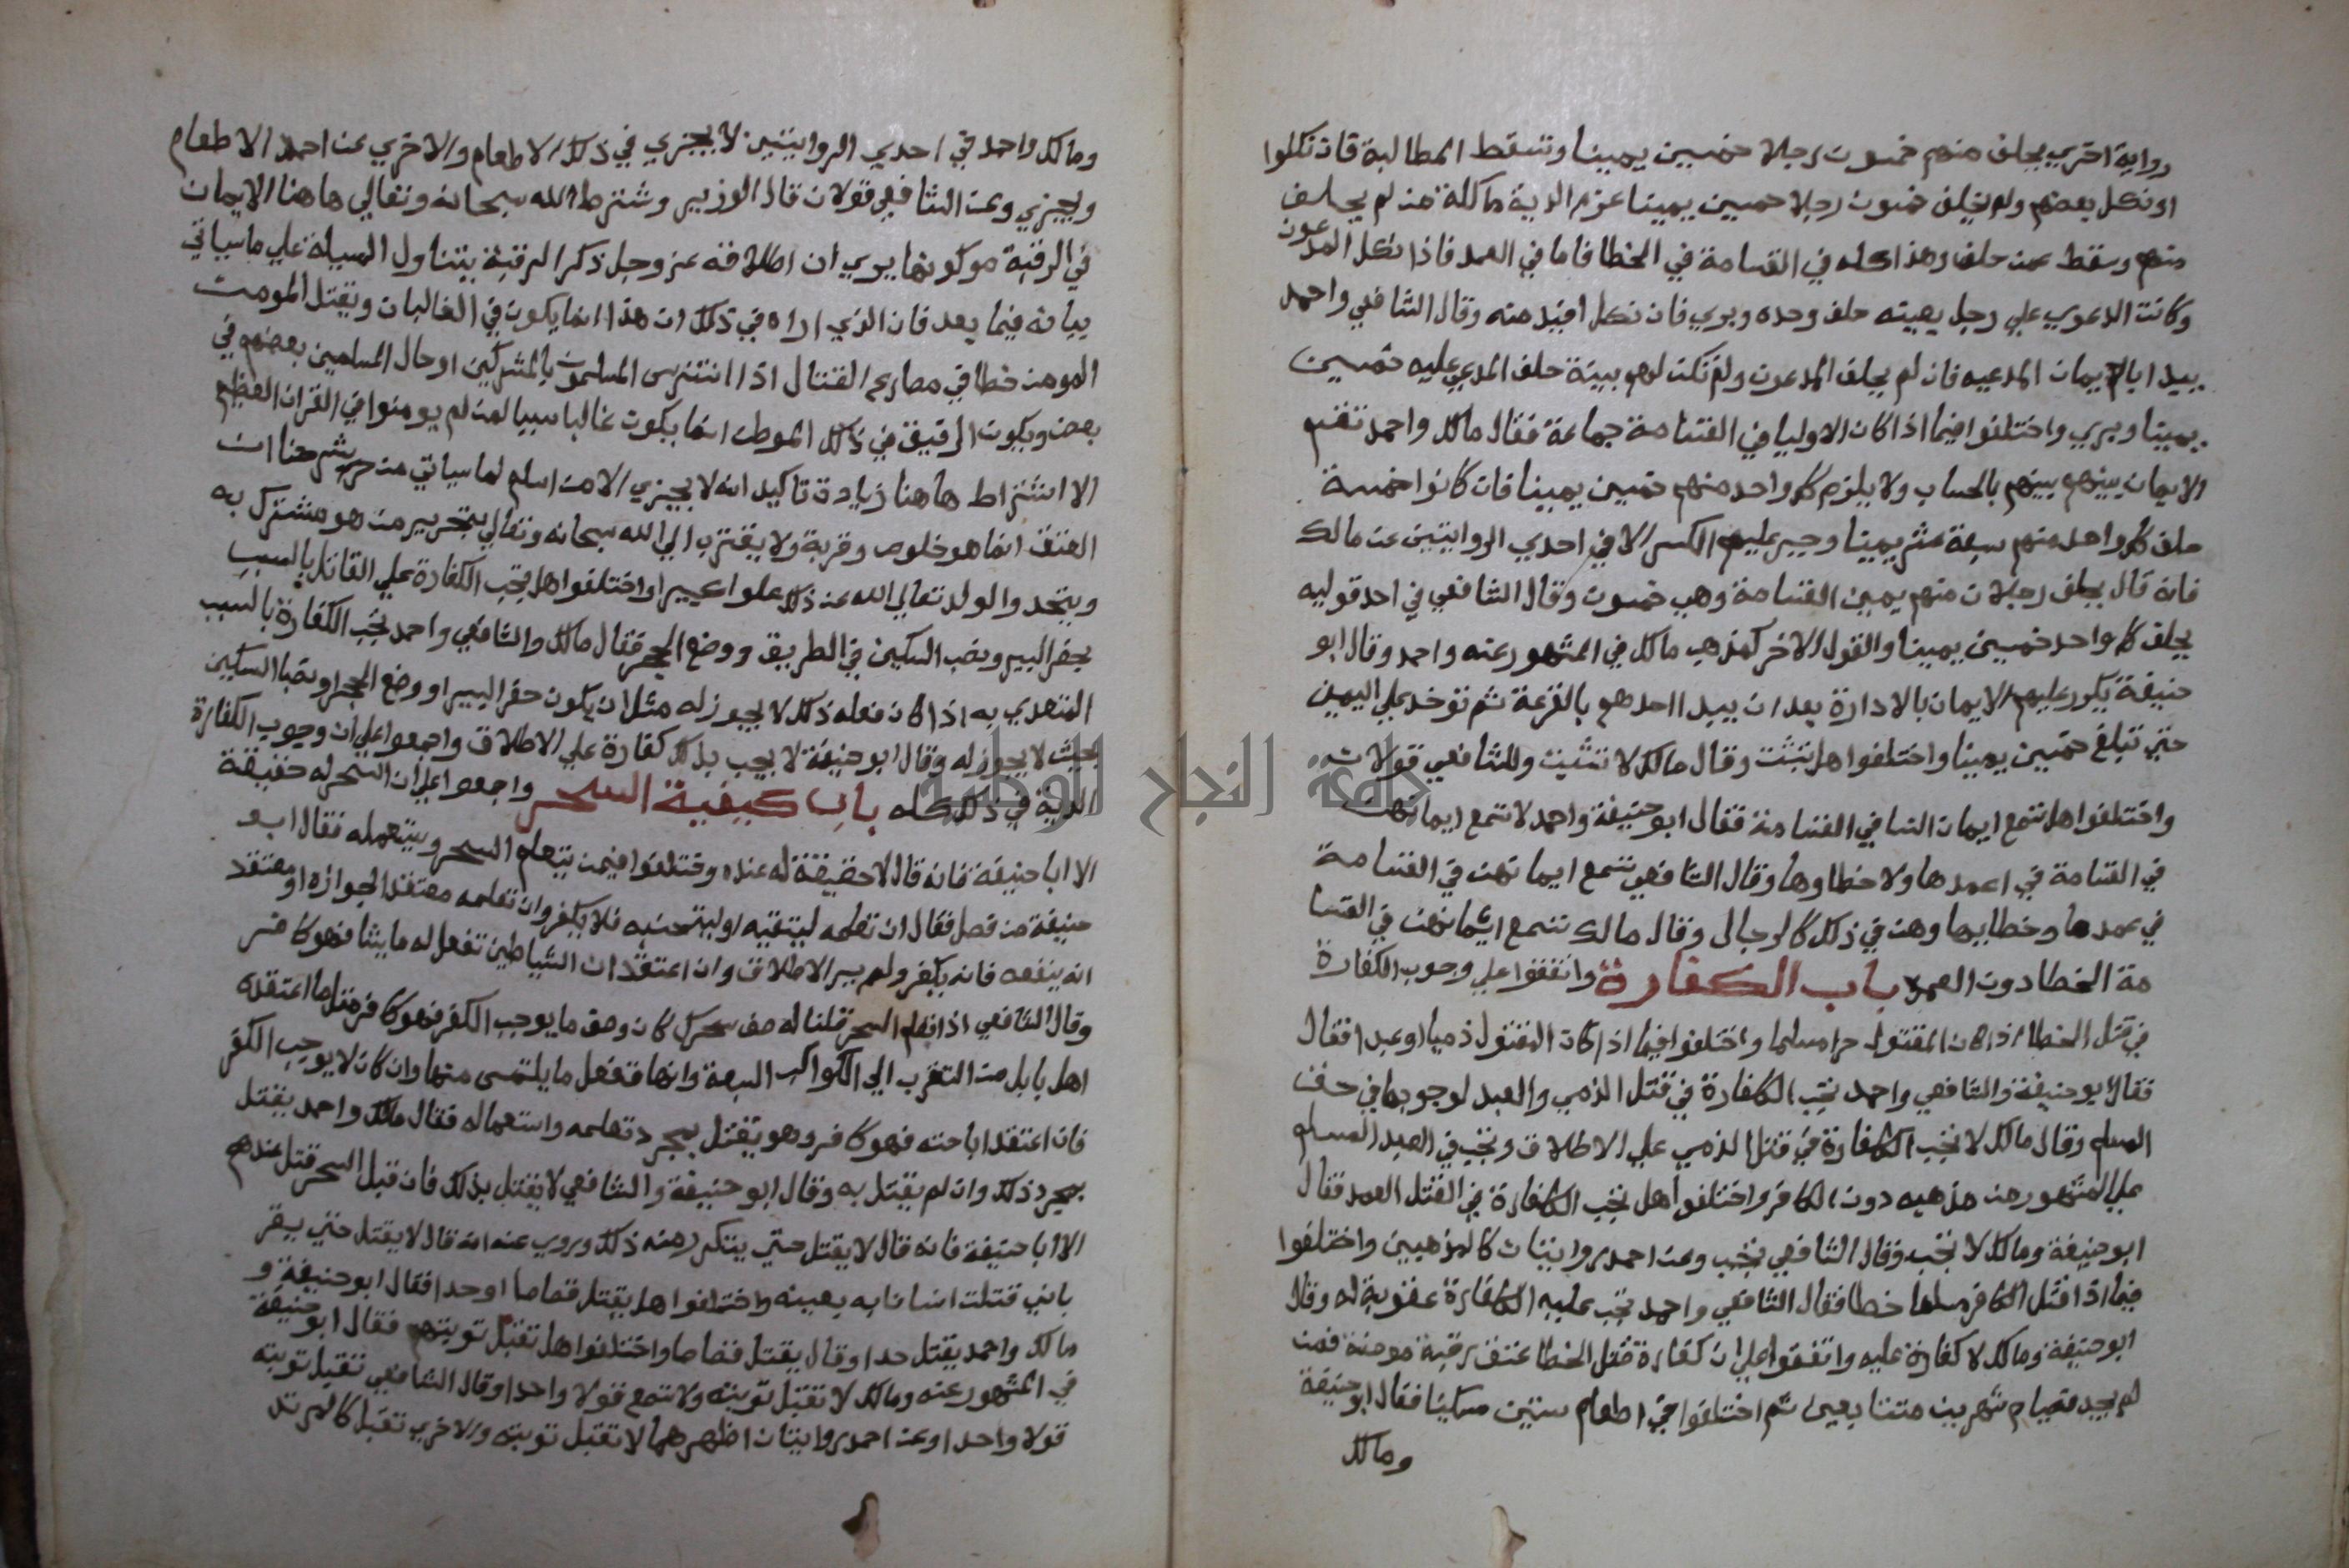 رواية اخري يحلف منهم خمسون رجلا خمسين يمينا وتسقط المطالبة فان نكلوا
او نكل بعضهم ولم يحلف خمسون رجلا خمسين يمينا غرم الدية ماكلة من لم يحلف
منهم وسقط عمن حلف وهذا كله في القسامة في الخطا فاما في العمد فاذا نكل المدعون
وكانت الدعوي علي رجل بعينه حلف وحده وبري فان نكل اقيد منه وقال الشافعي واحمد
يبدا بالايمان المدعيه فان لم يحلف المدعون ولم تكن لهم بينة حلف المدعي عليه خمسين
يمينا وبري واختلفوا فيما اذا كان الاوليا في القسامة جماعة فقال مالك واحمد تقسم
الايمان بينهم بينهم بالحساب ولا يلزم كل واحد منهم خمسين يمينا فان كانوا خمسة
حلف كل واحد منهم سبعة عشر يمينا وجبر عليهم الكسر الا في احدي الروايتين عن مالك
فانه قال يحلف رجلان منهم يمين القسامة وهي خمسون وقال الشافعي في احد قوليه
يحلف كل واحد خمسين يمينا والقول الاخر كمذهب مالك في المشهور عنه واحمد وقال ابو
حنيفة يكور عليهم الايمان بالادارة بعد ان يبدا احدهم بالقرعة ثم توخد علي اليمين
حتي تبلغ خمسين يمينا واختلفوا هل تثبت وقال مالك لا تثبت وللشافعي قولان
واختلفوا هل تسمع ايمان النسا في القسامة فقال ابو حنيفة واحمد لا تسمع ايمانهن
في القسامة في اعمدها ولا خطاوها وقال الشافعي تسمع ايمانهن في القسامة
في عمدها وخطايها وهن في ذلك كالرجال وقال مالك تسمع ايمانهن في القسا
مة الخطا دون العمد باب الكفارة واتفقوا علي وجوب الكفارة
في قتل الخطا اذا كان المقتول حرا مسلما واختلفوا فيما اذا كان المقتول ذميا او عبدا فقال
فقال ابو حنيفة والشافعي واحمد تجب الكفارة في قتل الذمي والعبد لوجوبها في حق
المسلم وقال مالك لا تجب الكفارة في قتل الذمي علي الاطلاق وتجب في العبد المسلم
علي المشهور من مذهبه دون الكافر واختلفوا هل تجب الكفارة في القتل العمد فقال
ابو حنيفة ومالك لا تجب وقال الشافعي تجب وعن احمد روايتان كالمذهبين واختلفوا
فيما اذا قتل الكافر مسلما خطا فقال الشافعي واحمد تجب عليه الكفارة عقوبة له وقال
ابو حنيفة ومالك لا كفارة عليه واتفقوا علي ان كفارة قتل الخطا عتق رقبة مومنة فمن
لم يجد فصيام شهرين متتابعين ثم اختلفوا في اطعام ستين مسكينا فقال ابو حنيفة
ومالك
ومالك واحمد في احدي الروايتين لا يجزي في ذلك الاطعام والاخري عن احمد الاطعام
ويجزي وعن الشافعي قولان قال الوزير وشترط الله سبحانه وتعالي هاهنا الايمان
في الرقبة موكونها يري ان اطلاقه عز وجل ذكر الرقبة يتناول المسيلة علي ما سياتي
بيانه فيما بعد فان الذي اراه في ذلك ان هذا انما يكون في الغالبات ويقتل المومن
المومن خطا في مصارع القتال اذا انتترس المسلمون بالمشركين او حال المسلمين بعضهم في
بعض ويكون الرقيق في ذلك الموطن انما يكون غالبا سبيا لمن لم يومنوا في القران العظيم
الا اشتراط هاهنا زيادة تاكيد انه لا يجزي الا من اسلم لما سياتي من حر شرحنا ان
العتق انما هو خلوص وقربة ولا يقترب الي الله سبحانه وتعالي بتحرير من هو مشترك به
ويتخد والولد تعالي الله عن ذلك علوا كبيرا واختلفوا هل تجب الكفارة علي القاتل بالسبب
بحفر البير ونصب السكين في الطريق ووضع الحجر فقال مالك والشافعي واحمد تجب الكفارة بالسبب
المتعدي به اذا كان فعله ذلك لا يجوز له مثل ان يكون حفر البير او وضع الحجر او نصبا السكين
بحيث لا يجوز له وقال ابو حنيفة لا يجب بذلك كفارة علي الاطلاق واجمعوا علي ان وجوب الكفارة
الدية في ذلك كله باب كيفية السحر واجمعوا علي ان السحر له حقيقة
الا ابا حنيفة فانه قال لا حقيقة له عنده وختلفوا فيمن يتعلم السحر ويستعمله فقال ابو
حنيفة من فصل فقال ان تعلمه ليتقيه او ليتجنبه فلا يكفر وان تعلمه معتقد الجوازه او معتقد
انه ينفعه فانه يكفر ولم يير الاطلاق وان اعتقد ان الشياطين تفعل له ما يشا فهو كافر
وقال الشافعي اذا تعلم السحر قلنا له صف سحرك كان وصف ما يوجب الكفر فهو كافر مثل ما اعتقده
اهل بابل من التقرب الي الكواكب السبعة وانها تفعل ما يلتمس منها وان كان لا يوجب الكفر
فان اعتقد اباحته فهو كافر وهو يقتل بمجرد تعلمه واستعماله فقال مالك واحمد يقتل
بمجرد ذلك وان لم يقتل به وقال ابو حنيفة والشافعي لا يقتل بذلك فان قتل السحر قتل عندهم
الا ابا حنيفة فانه قال لا يقتل حتي يتكرر منه ذلك وروي عنه انه قال لا يقتل حتي يقر
باني قتلت انسانا به بعينه واختلفوا هل يقتل قصاصا او حدا فقال ابو حنيفة و
مالك واحمد يقتل حدا وقال يقتل قصاصا واختلفوا هل تقبل توبتهم فقال ابو حنيفة
في المشهور عنه ومالك لا تقبل توبته ولا تسمع قولا واحدا وقال الشافعي تقبل توبته
قولا واحدا وعن احمد روايتان اظهرهما لا تقبل توبته والاخري تقبل كالمرتد
جامعة النجاح الوطنية